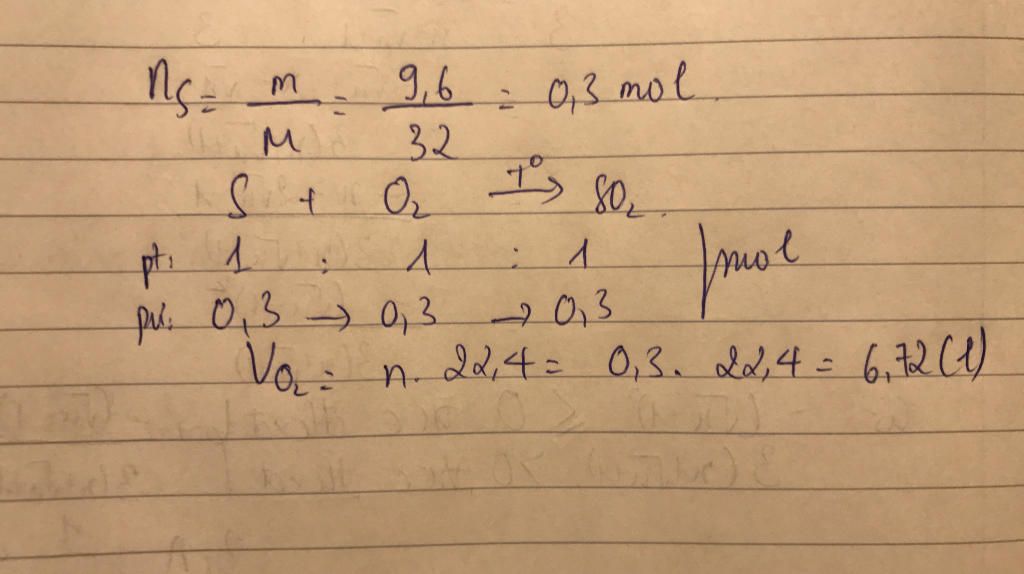 nS = m/M = 9,6/32 = 0,3 mol.
S + O₂ —t°→ SO₂.
pt: 1 : 1 : 1 | mol
pư: 0,3 → 0,3 → 0,3
VO₂ = n. 22,4 = 0,3. 22,4 = 6,72 (l)